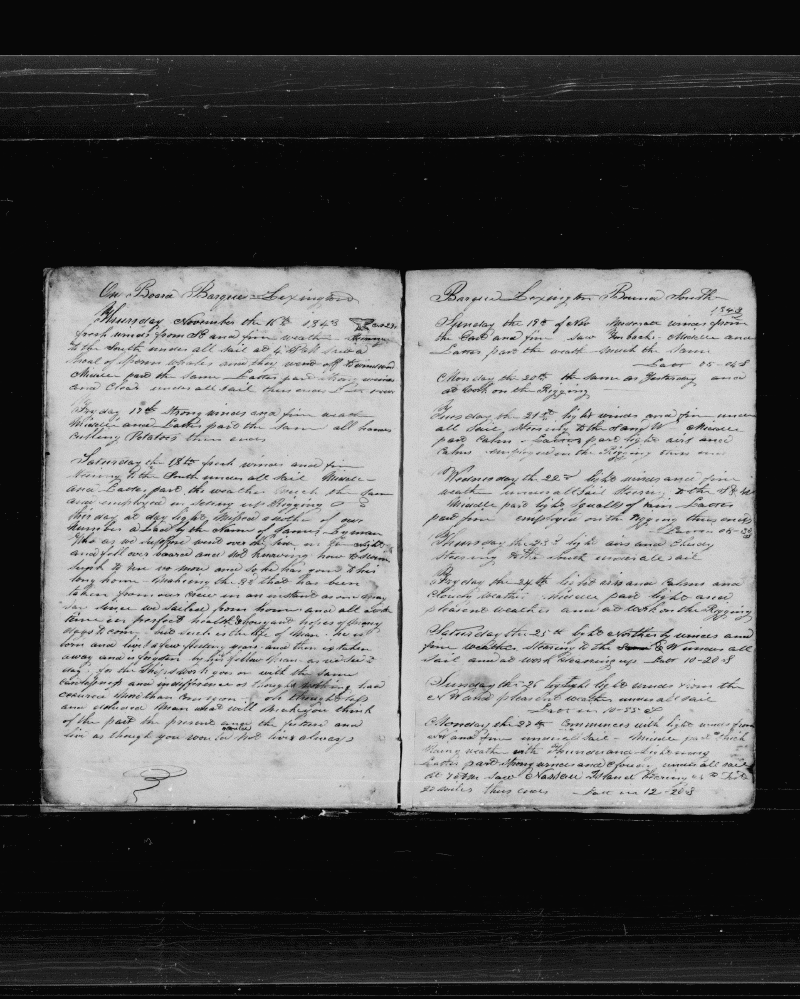 On Board Barque Lexington
Thursday November the 16th 1843
fresh winds from SE and fine weather
to the South under all sail at 4 PM saw a
shoal of Sperm whales and they went off to windward
Middle part the same Latter part strong winds
and Clear under all sail thus ends
Fryday 17th Strong winds and fine weather
Middle and Latter part the same all hands
Cutting Potatoes thus ends
Saturday the 18th fresh winds and fine
Steering to the South under all sail Middle
and Latter part the weather much the same
and employed in setting up Rigging
this day at day light Missed another of our
number a Lad by the name of James Lyman
Who as we suppose went over the bow in the night
and fell over board and not knowing how to swim
sunk to rise no more and so he has gone to his
long home Making the 3d that has been
taken from our crew in an instant as one may
say since we sailed from home and all
time in perfect health and hopes of many
days to come but such is the life of Man he is
born and lives a few fleeting years and then is taken
away and is forgotten by his fellow Man as in this
day for the Ships work goes on with the same
carelessness and indifference as though nothing had
occured more than common Oh thoughtless
and deluded Man what will make you think
of the past the present and the future and
live as though you would not live always
Barque Lexington Bound South
1843
Sunday the 19th of Nov Moderate winds from
the East and fine saw Finbacks Middle and
Latter part the weath much the same
Latt 05-04 S
Monday the 20th the same as Yesterday and
at work on the Rigging
Tuesday the 21st light winds and fine under
all sail, steering to the S and W Middle
part Calm Latter part light airs and
Calms employed in the Rigging thus ends
Wednesday the 22d light winds and fine
weath under all sail Steering to the
Middle part light Squalls of rain Latter
part fine employed on the Rigging thus ends
Thursday the 23d light airs and Cloudy
Steering to the south under all sail
Fryday the 24th light airs and Calms and
Cloudy weather Middle part light and
pleasent weather and at work on the Rigging
Saturday the 25th light Northerly winds and
fine weather steering to the S W under all
sail and at work Cleaning up Latt 10-20 S
Sunday the 26 light winds from the
N W and pleasent weather under all sail
Latt in 10-55 S
Monday the 27th Commences with light winds from
and fine under all sail Middle part thick
rainy weath with Thunder and Lightning
Latter part strong winds and under all sail
at 7 AM saw Nassau Island bearing
20 miles thus ends Latt in 12-20 S